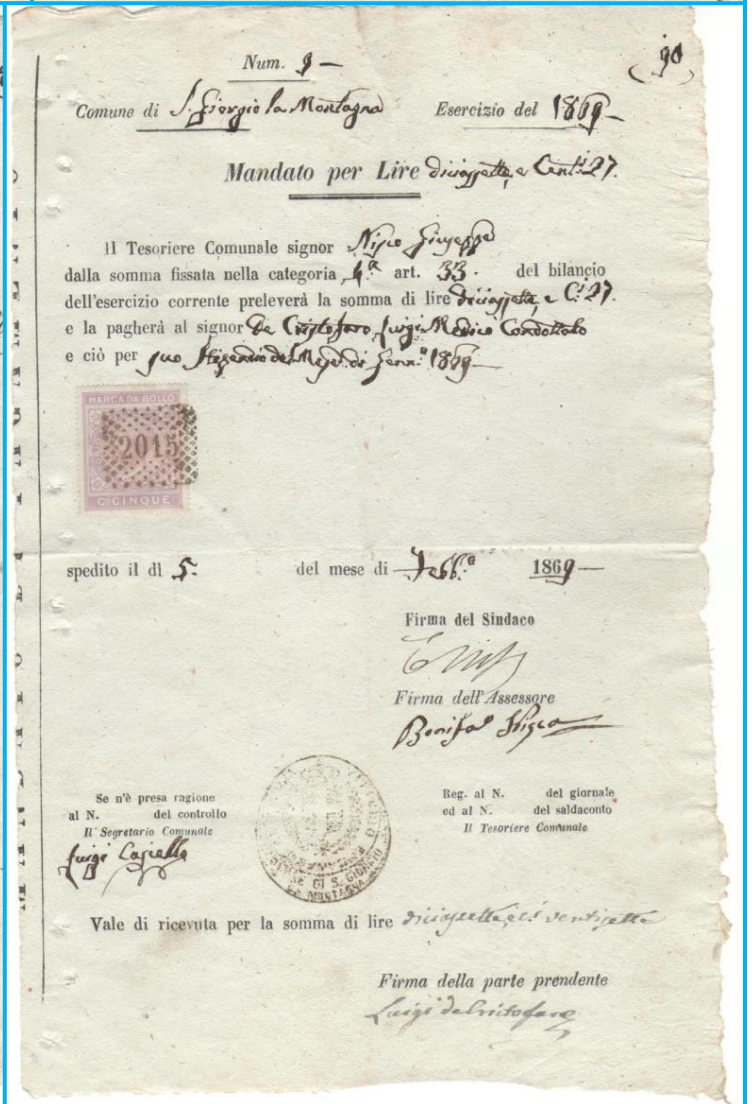 90
Num. 9 —
Comune di S. Giorgio la Montagna Esercizio del 1869 —
Mandato per Lire diciassette, e Cent.i 27.
Il Tesoriere Comunale signor Nisco Giuseppe
dalla somma fissata nella categoria 4.a art. 33. del bilancio
dell'esercizio corrente preleverà la somma di lire diciassette, e C.i 27.
e la pagherà al signor De Cristofaro Luigi Medico Condottato
e ciò per suo Stipendio del Mese di Genn.o 1869 —
MARCA DA BOLLO
2015
C.mi CINQUE
spedito il dì 5. del mese di Febb.o 1869 —
Firma del Sindaco
Firma dell'Assessore
Nisco
Se n'è presa ragione
al N. del controllo
Il Segretario Comunale
Luigi
Reg. al N. del giornale
ed al N. del saldaconto
Il Tesoriere Comunale
COMUNE DI S. GIORGIO
LA MONTAGNA
Vale di ricevuta per la somma di lire diciassette, e c.i ventisette
Firma della parte prendente
Luigi de Cristofaro